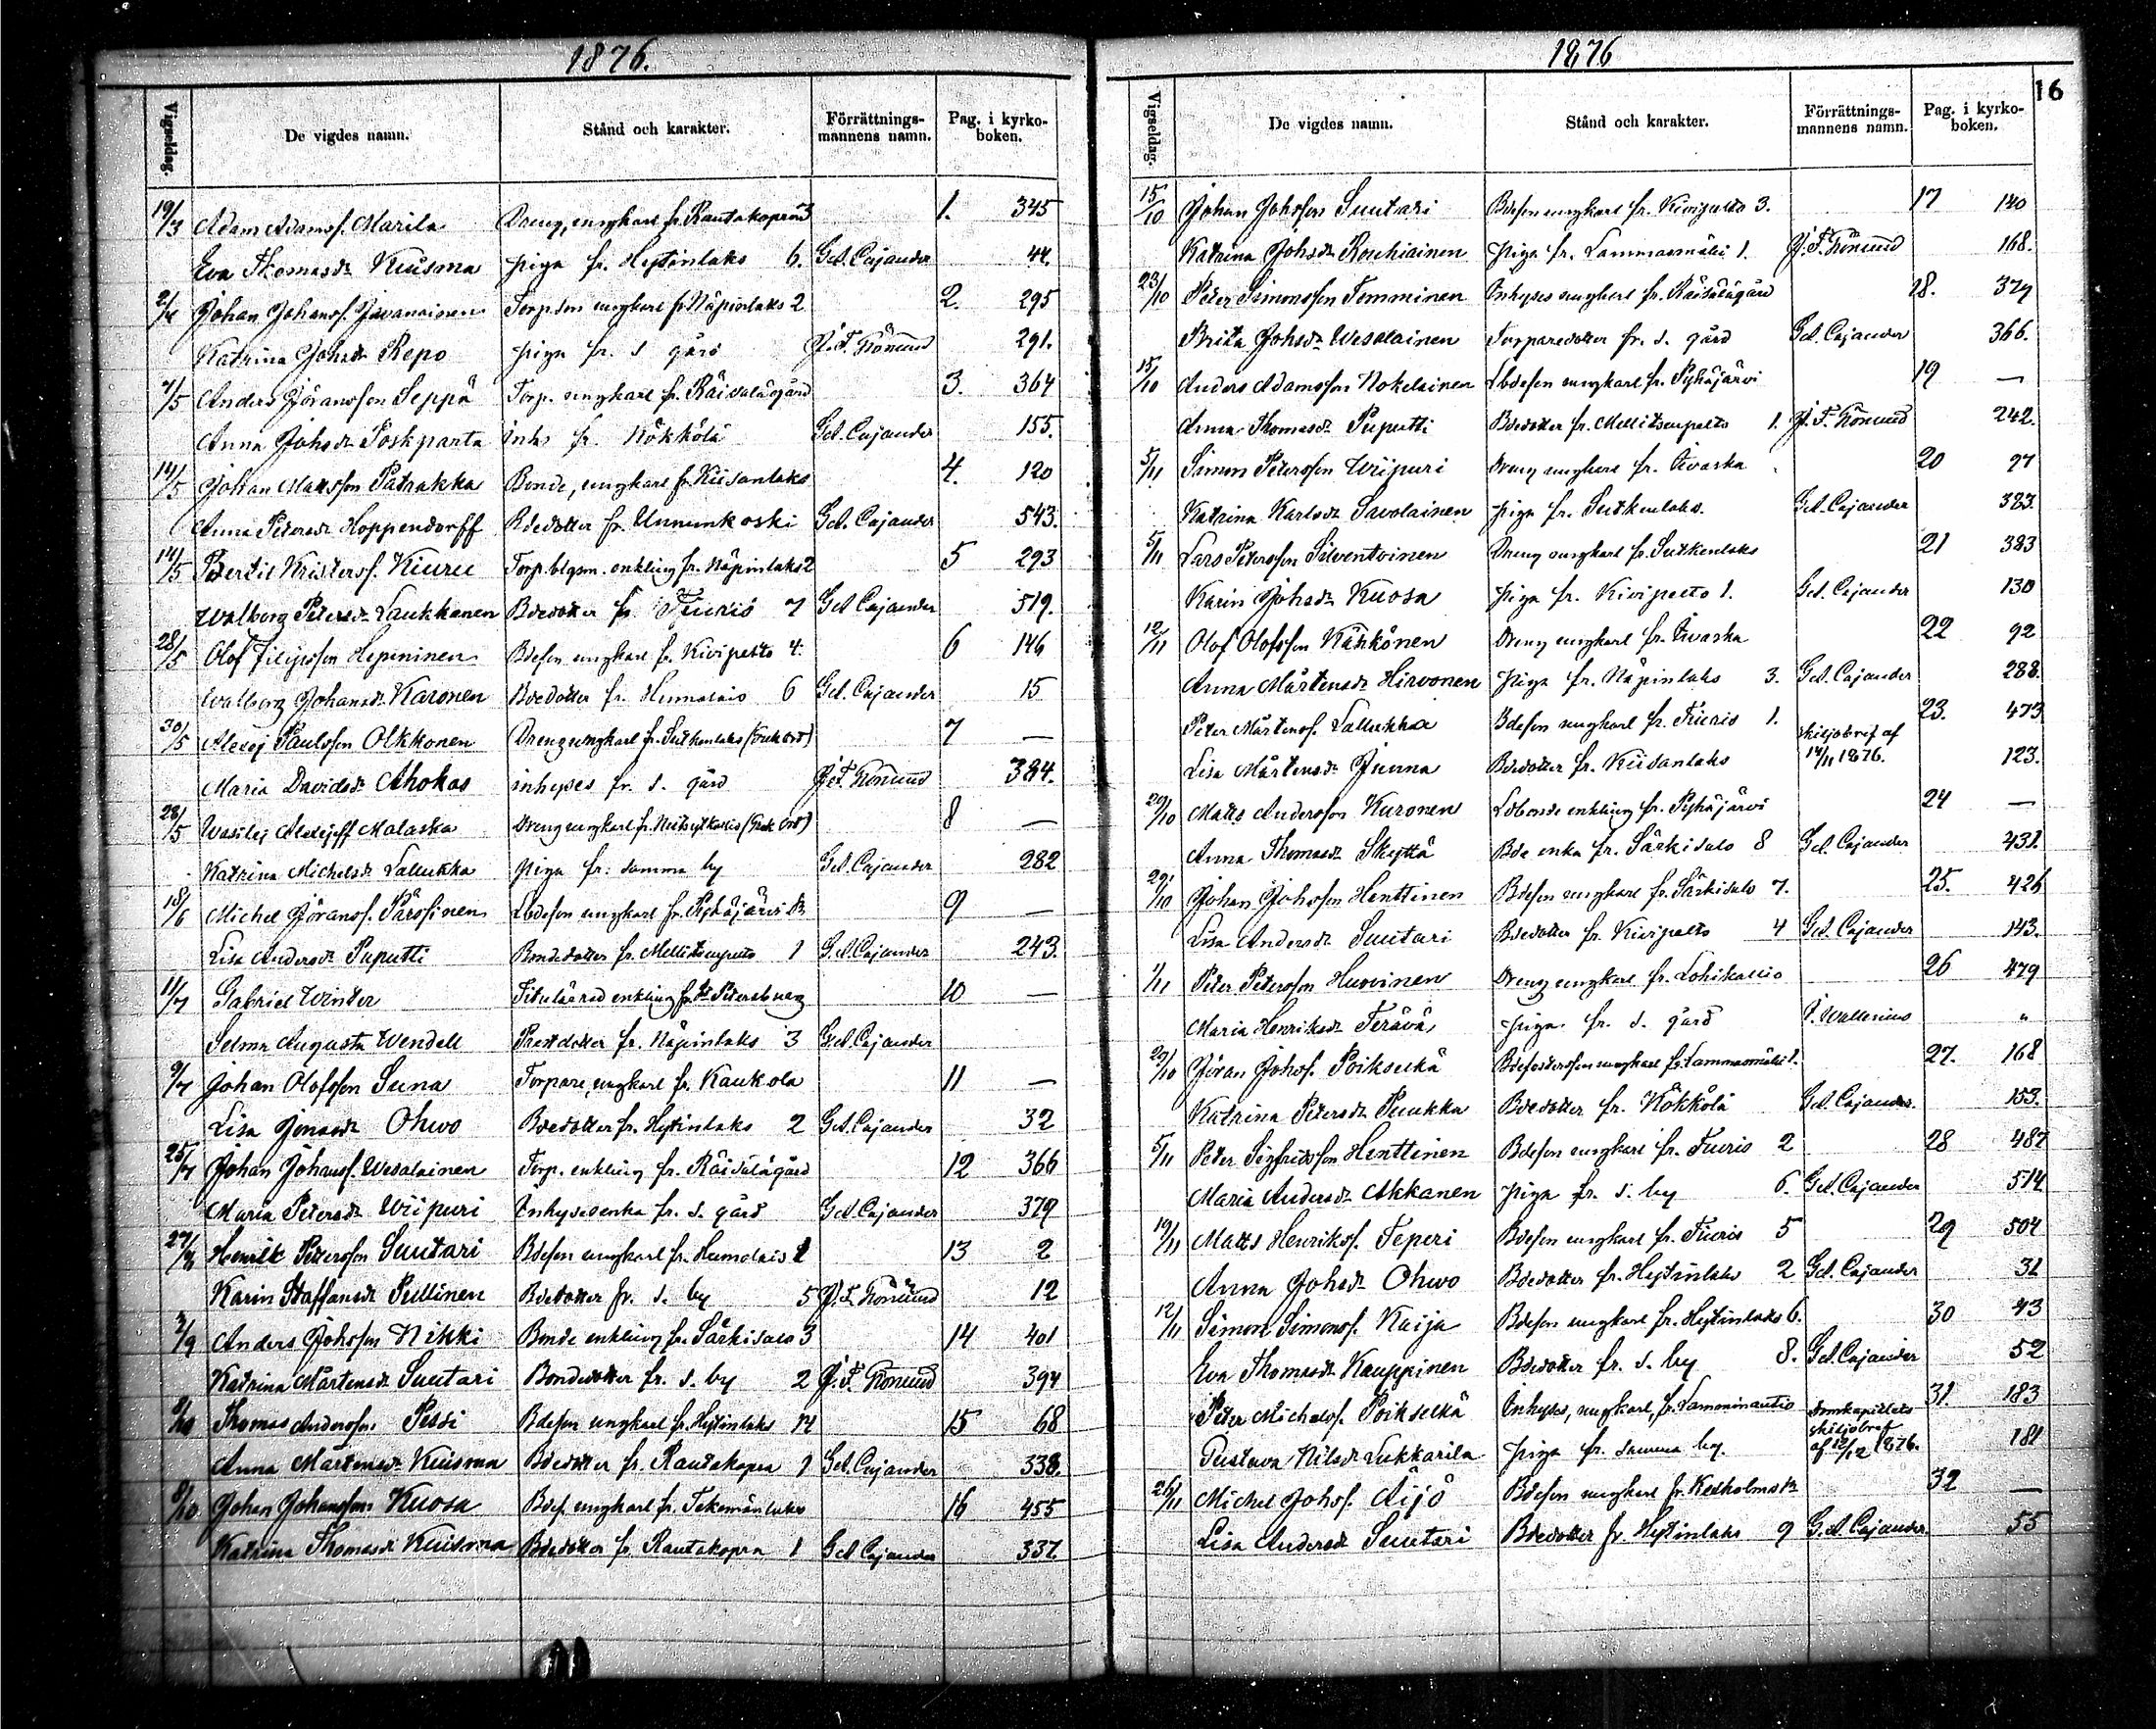 1876.
Vigseldag. De vigdes namn. Stånd och karakter. Förrättnings-mannens namn. Pag. i kyrko-boken.
19/3 Adam Adamsf. Marila Dreng, ungkarl fr. Rautakopra 3 1. 345
Eva Thomasdr Kiisma piga fr. Hytinlaks 6. G.A. Cajander 44.
2/4 Johan Johansf. Javanainen Torp.son ungkarl fr. Näpinlaks 2 2. 295
Katrina Johsdr Repo piga fr. s gård J.F. Grönlund 291.
7/5 Anders Jöransson Seppä Torp. ungkarl fr. Räisälägård 3. 364
Anna Johsdr Poskparta inhs fr. Kökkölä G.A. Cajander 155.
14/5 Johan Mattsson Patrakka Bonde, ungkarl fr. Kiisanlaks 4. 120
Anna Petersdr Hoppendorff Bdedotter fr. Unnunkoski G.A. Cajander 543.
14/5 Bertil Kristersf. Kiuru Torp.blgsm. enkling fr. Näpinlaks 2 5 293
Walborg Petersdr Laukkanen Bdedotter fr. Tiuris 7 G.A. Cajander 519.
28/5 Olof Filipsson Hypninen Bdeson ungkarl fr. Kivipelto 4. 6 146
Walborg Johansdr Karonen Bdedotter fr. Humalais 6 G.A. Cajander 15
30/5 Alexej Paulsson Olkkonen Dreng ungkarl fr. Sutkenlaks (Grek Ort) 7 —
Maria Davidsdr Ahokas inhyses fr. s. gård J.F. Grönlund 384.
28/5 Wasilej Alexejeff Malaska Dreng ungkarl fr. (Grek Ort) 8 —
Katrina Michelsdr Lallukka piga fr. samma by G.A. Cajander 282
18/6 Michel Jöransf. Pärssinen Lbdeson ungkarl fr. Pyhäjärvi sn 9 —
Lisa Andersdr Puputti Bondedotter fr. Mellitsenpelto 1 G.A. Cajander 243.
11/7 Gabriel Winter Titulärråd enkling fr. St Petersburg 10 —
Selma Augusta Wendell Prestdotter fr. Näpinlaks 3 G.A. Cajander
9/7 Johan Olofsson Suna Torpare, ungkarl fr. Kaukola 11 —
Lisa Jonasdr Ohvo Bdedotter fr. Hytinlaks 2 G.A. Cajander 32
25/7 Johan Johansf. Wesalainen Torp. enkling fr. Räisälägård 12 366
Maria Petersdr Wiipuri Inhysesenka fr. s. gård G.A. Cajander 379
27/8 Henrik Petersson Suutari Bdeson ungkarl fr. Humalais 1 13 2
Karin Staffansdr Pullinen Bdedotter fr. s. by 5 J.F. Grönlund 12
3/9 Anders Johsson Nikki Bonde enkling fr. Särkisalo 3 14 401
Katrina Mårtensdr Suutari Bondedotter fr. s. by 2 J.F. Grönlund 394
8/10 Thomas Andersson Pessi Bdeson ungkarl fr. Hytinlaks 14 15 68
Anna Mårtensdr Kuisma Bdedotter fr. Rautakopra 1 G.A. Cajander 338.
8/10 Johan Johansson Kuosa Bdes. ungkarl fr. Takamanlaks 16 455
Katrina Thomasdr Kuisma Bdedotter fr. Rautakopra 1 G.A. Cajander 337.
1876
16
Vigseldag. De vigdes namn. Stånd och karakter. Förrättnings-mannens namn. Pag. i kyrko-boken.
15/10 Johan Johsson Suutari Bdeson ungkarl fr. Kivipelto 3. 17 140
Katrina Johsdr Rouhiainen piga fr. Lammasmäki 1. J.F. Grönlund 168.
23/10 Peter Simonsson Tomminen Inhyses ungkarl fr. Räisälägård 18. 379
Brita Johsdr Wesalainen Torparedotter fr. s. gård G.A. Cajander 366.
15/10 Anders Adamsson Nokelainen Lbdeson ungkarl fr. Pyhäjärvi 19 —
Anna Thomasdr Puputti Bdedotter fr. Mellitsenpelto 1. J.F. Grönlund 242.
5/11 Simon Petersson Wiipuri Dreng ungkarl fr. Ivaska 20 97
Katrina Karlsdr Savolainen piga fr. Sutkenlaks. G.A. Cajander 383.
5/11 Lars Petersson Silventoinen Dreng ungkarl fr. Sutkenlaks 21 383
Karin Johsdr Kuosa piga fr. Kivipelto 1. G.A. Cajander 130
12/11 Olof Olofsson Kähkönen Dreng ungkarl fr. Ivaska 22 92
Anna Mårtensdr Hirvonen piga fr. Näpinlaks 3. G.A. Cajander 288.
Peter Mårtensf. Lallukka Bdeson ungkarl fr. Tiuris 1. skiljobref af 23. 473
Lisa Mårtensdr Junna Bdedotter fr. Kiisanlaks 14/11 1876. 123.
29/10 Matts Andersson Kuronen Lbbonde enkling fr. Pyhäjärvi 24 —
Anna Thomasdr Skyttä Bde enka fr. Särkisalo 8 G.A. Cajander 431.
29/10 Johan Johsson Henttinen Bdeson ungkarl fr. Särkisalo 7. 25. 426
Lisa Andersdr Suutari Bdedotter fr. Kivipelto 4 G.A. Cajander 143.
1/11 Peter Petersson Hurvinen Dreng ungkarl fr. Lohikallio 26 479
Maria Henriksdr Terävä piga fr. s. gård Wallenius "
29/10 Jöran Johsf. Poikselkä Bdefosterson ungkarl fr. Lammasmäki 1. 27. 168
Katrina Petersdr Puukka Bdedotter fr. Kökkölä G.A. Cajander. 153.
5/11 Peter Sigfridsson Henttinen Bdeson ungkarl fr. Tiuris 2 28 487
Maria Andersdr Akkanen piga fr. s. by 6. G.A. Cajander 514
19/11 Matts Henriksf. Teperi Bdeson ungkarl fr. Tiuris 5 29 504
Anna Johsdr Ohvo Bdedotter fr. Hytinlaks 2 G.A. Cajander 31
12/11 Simon Simonsf. Kaija Bdeson ungkarl fr. Hytinlaks 6. 30 43
Eva Thomasdr Kauppinen Bdedotter fr. s. by 8. G.A. Cajander 52
Peter Michelsf. Poikselkä Inhyses, ungkarl, fr. Lamminautio domkapitlets skiljobref 31. 183
Gustava Nilsdr Lukkarila piga fr. samma by. af 12/12 1876. 181
26/11 Michel Johsf. Äijö Bdeson ungkarl fr. Kexholms sn 32 —
Lisa Andersdr Suutari Bdedotter fr. Hytinlaks 9 G.A. Cajander 55